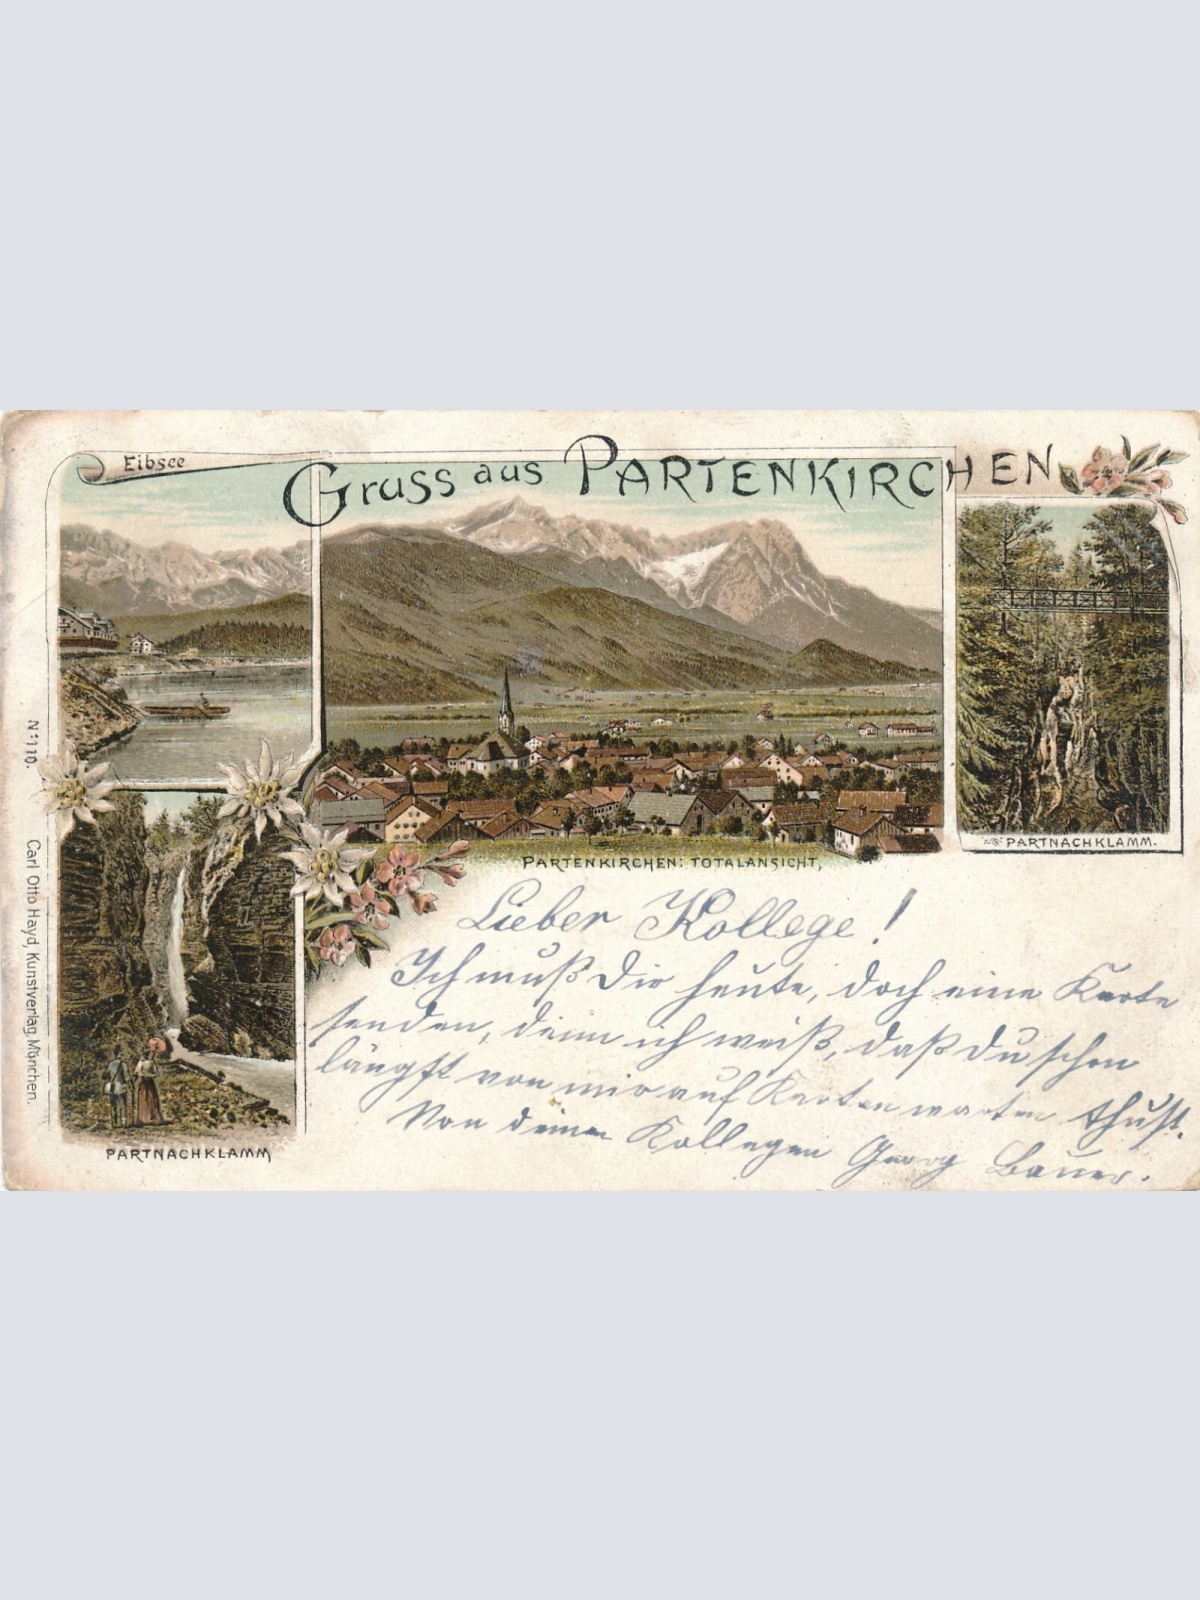 Eibsee
Gruss aus PARTENKIRCHEN
PARTNACHKLAMM.
PARTENKIRCHEN: TOTALANSICHT,
PARTNACHKLAMM
Nº 1110. Carl Otto Hayd, Kunstverlag, München.
Lieber Kollege!
Ich muß Dir heute, doch eine Karte
senden, denn ich weiß, daß Du schon
längst von mir auf Karten warten thust.
Von deinem Kollegen Georg Bauer.